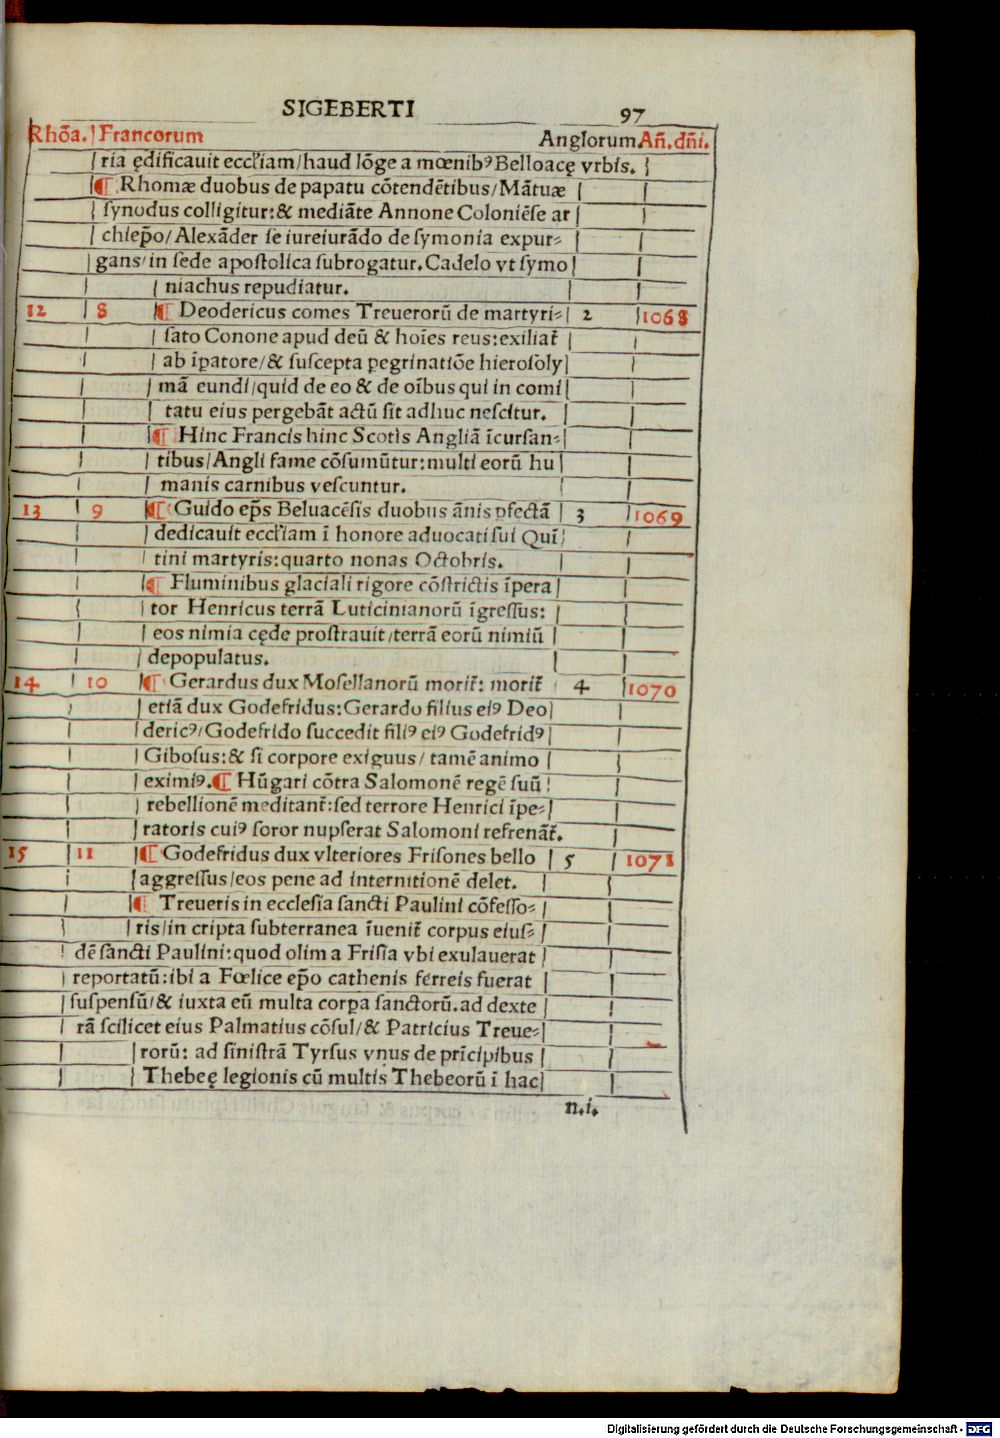 SIGEBERTI 97
Rhōa. Francorum Anglorum Añ. dñi.
ria ędificauit eccl'iam/haud lōge a mœnibꝰ Belloacę vrbis.
¶ Rhomæ duobus de papatu cōtendētibus/Mātuæ
synodus colligitur: & mediāte Annone Coloniēse ar
chiep̄o/Alexāder se iureiurādo de symonia expur-
gans/in sede apostolica subrogatur. Cadelo vt symo
niachus repudiatur.
12 8 ¶ Deodericus comes Treuerorū de martyri- 2 1068
sato Conone apud deū & hoīes reus: exiliat̄
ab īpatore/& suscepta pegrinatiōe hierosoly
mā eundi/quid de eo & de oībus qui in comi
tatu eius pergebāt actū sit adhuc nescitur.
¶ Hinc Francis hinc Scotis Angliā īcursan-
tibus/Angli fame cōsumūtur: multi eorū hu
manis carnibus vescuntur.
13 9 ¶ Guido ep̄s Beluacēsis duobus ānis ꝓfectā 3 1069
dedicauit eccl'iam ī honore aduocati sui Quī
tini martyris: quarto nonas Octobris.
¶ Fluminibus glaciali rigore cōstrictis īpera
tor Henricus terrā Luticinianorū īgressus:
eos nimia cęde prostrauit/terrā eorū nimiū
depopulatus.
14 10 ¶ Gerardus dux Mosellanorū morit̄: morit̄ 4 1070
etiā dux Godefridus: Gerardo filius eiꝰ Deo
dericꝰ/Godefrido succedit filiꝰ eiꝰ Godefridꝰ
Gibosus: & si corpore exiguus/tamē animo
eximiꝰ. ¶ Hūgari cōtra Salomonē regē suū
rebellionē meditant̄: sed terrore Henrici īpe-
ratoris cuiꝰ soror nupserat Salomoni refrenāt̄.
15 11 ¶ Godefridus dux vlteriores Frisones bello 5 1071
aggressus/eos pene ad internitionē delet.
¶ Treueris in ecclesia sancti Paulini cōfesso-
ris/in cripta subterranea īuenit̄ corpus eius-
dē sancti Paulini: quod olim a Frisia vbi exulauerat
reportatū: ibi a Fœlice ep̄o cathenis ferreis fuerat
suspensū/& iuxta eū multa corpa sanctorū. ad dexte
rā scilicet eius Palmatius cōsul/& Patricius Treue-
rorū: ad sinistrā Tyrsus vnus de prīcipibus
Thebeę legionis cū multis Thebeorū ī hac
n.i.
Digitalisierung gefördert durch die Deutsche Forschungsgemeinschaft - DFG